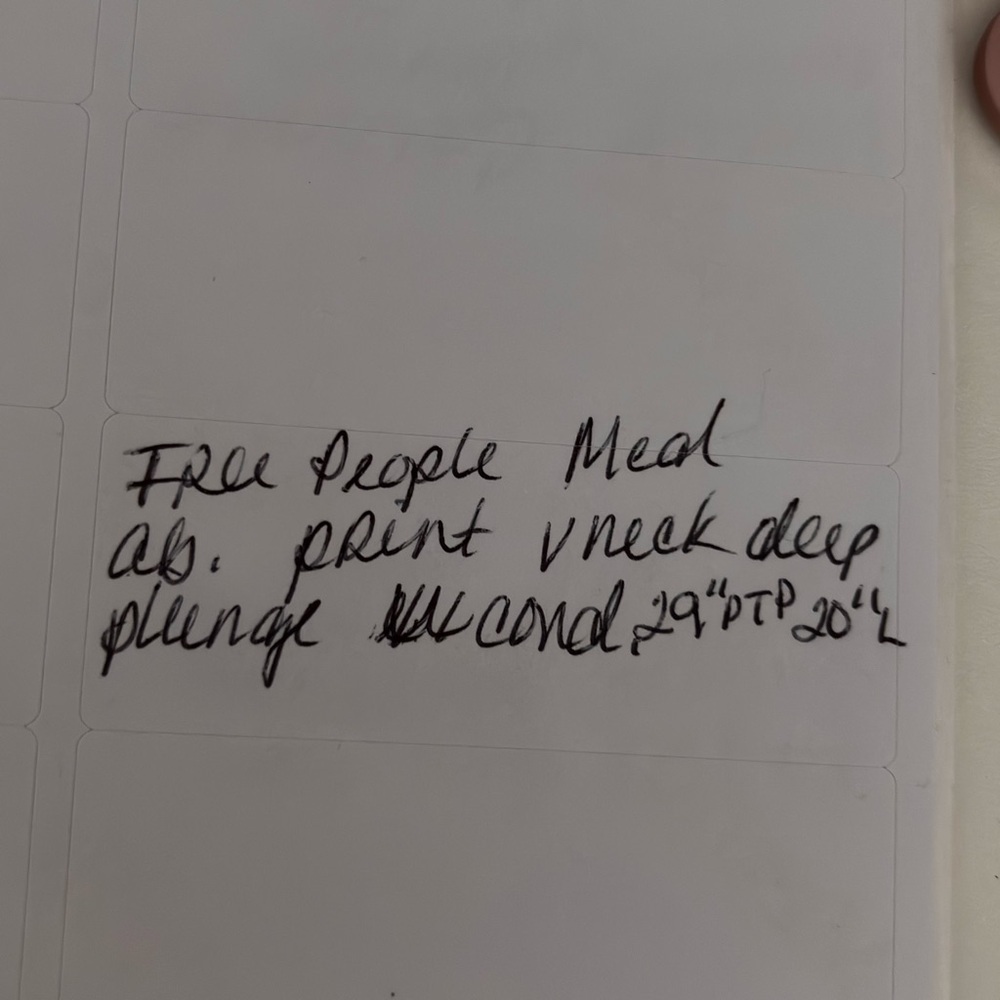 Free People Med
ab. print v neck deep
plunge cond. 29" PTP 20" L